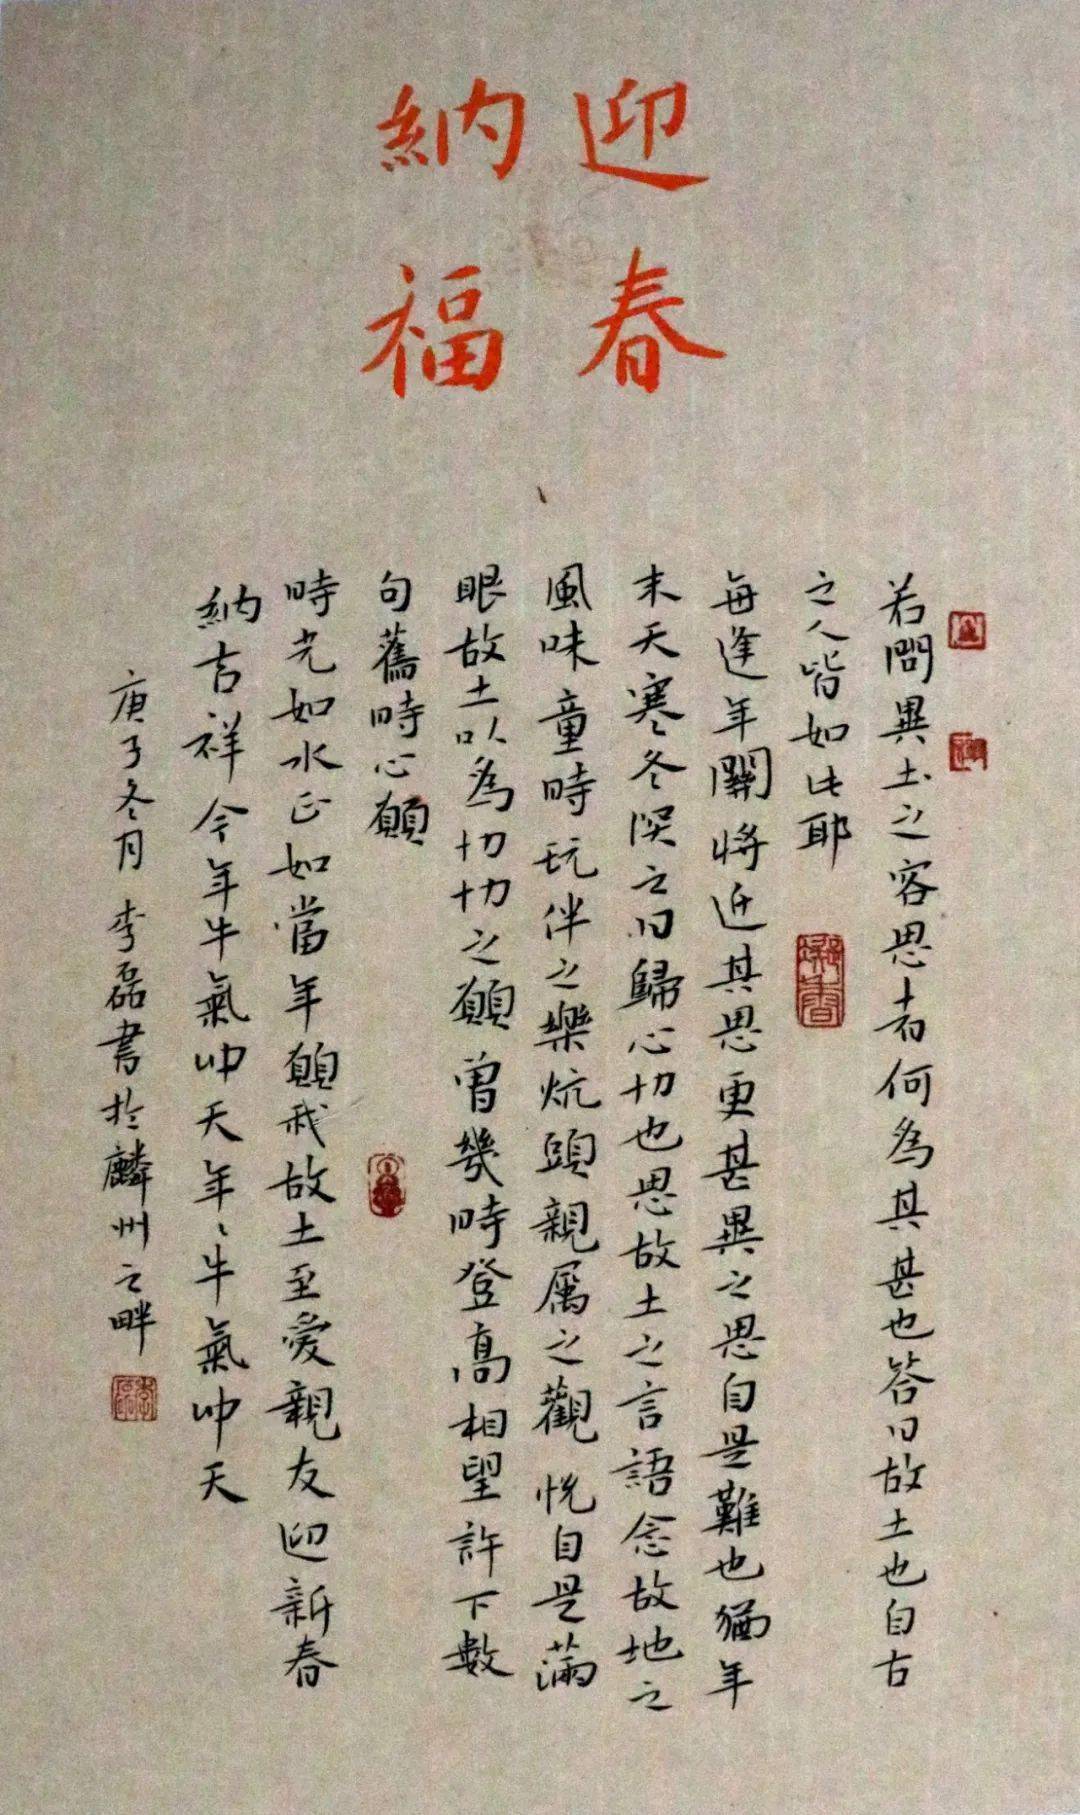 迎春
納福
若問異土之容思者何為其甚也答曰故土也自古
之人皆如此耶
每逢年關將近其思更甚異之思自是難也猶年
末天寒冬
之曰歸心切也思故土之言語念故地之
風味童時玩伴之樂炕頭親属之觀悦自是滿
眼故土以為切切之願曾幾時登高相望許下數
句舊時心願
時光如水正如當年願我故土至愛親友迎新春
納吉祥今年牛氣冲天年年牛氣冲天
庚子冬月李磊書於麟州之畔